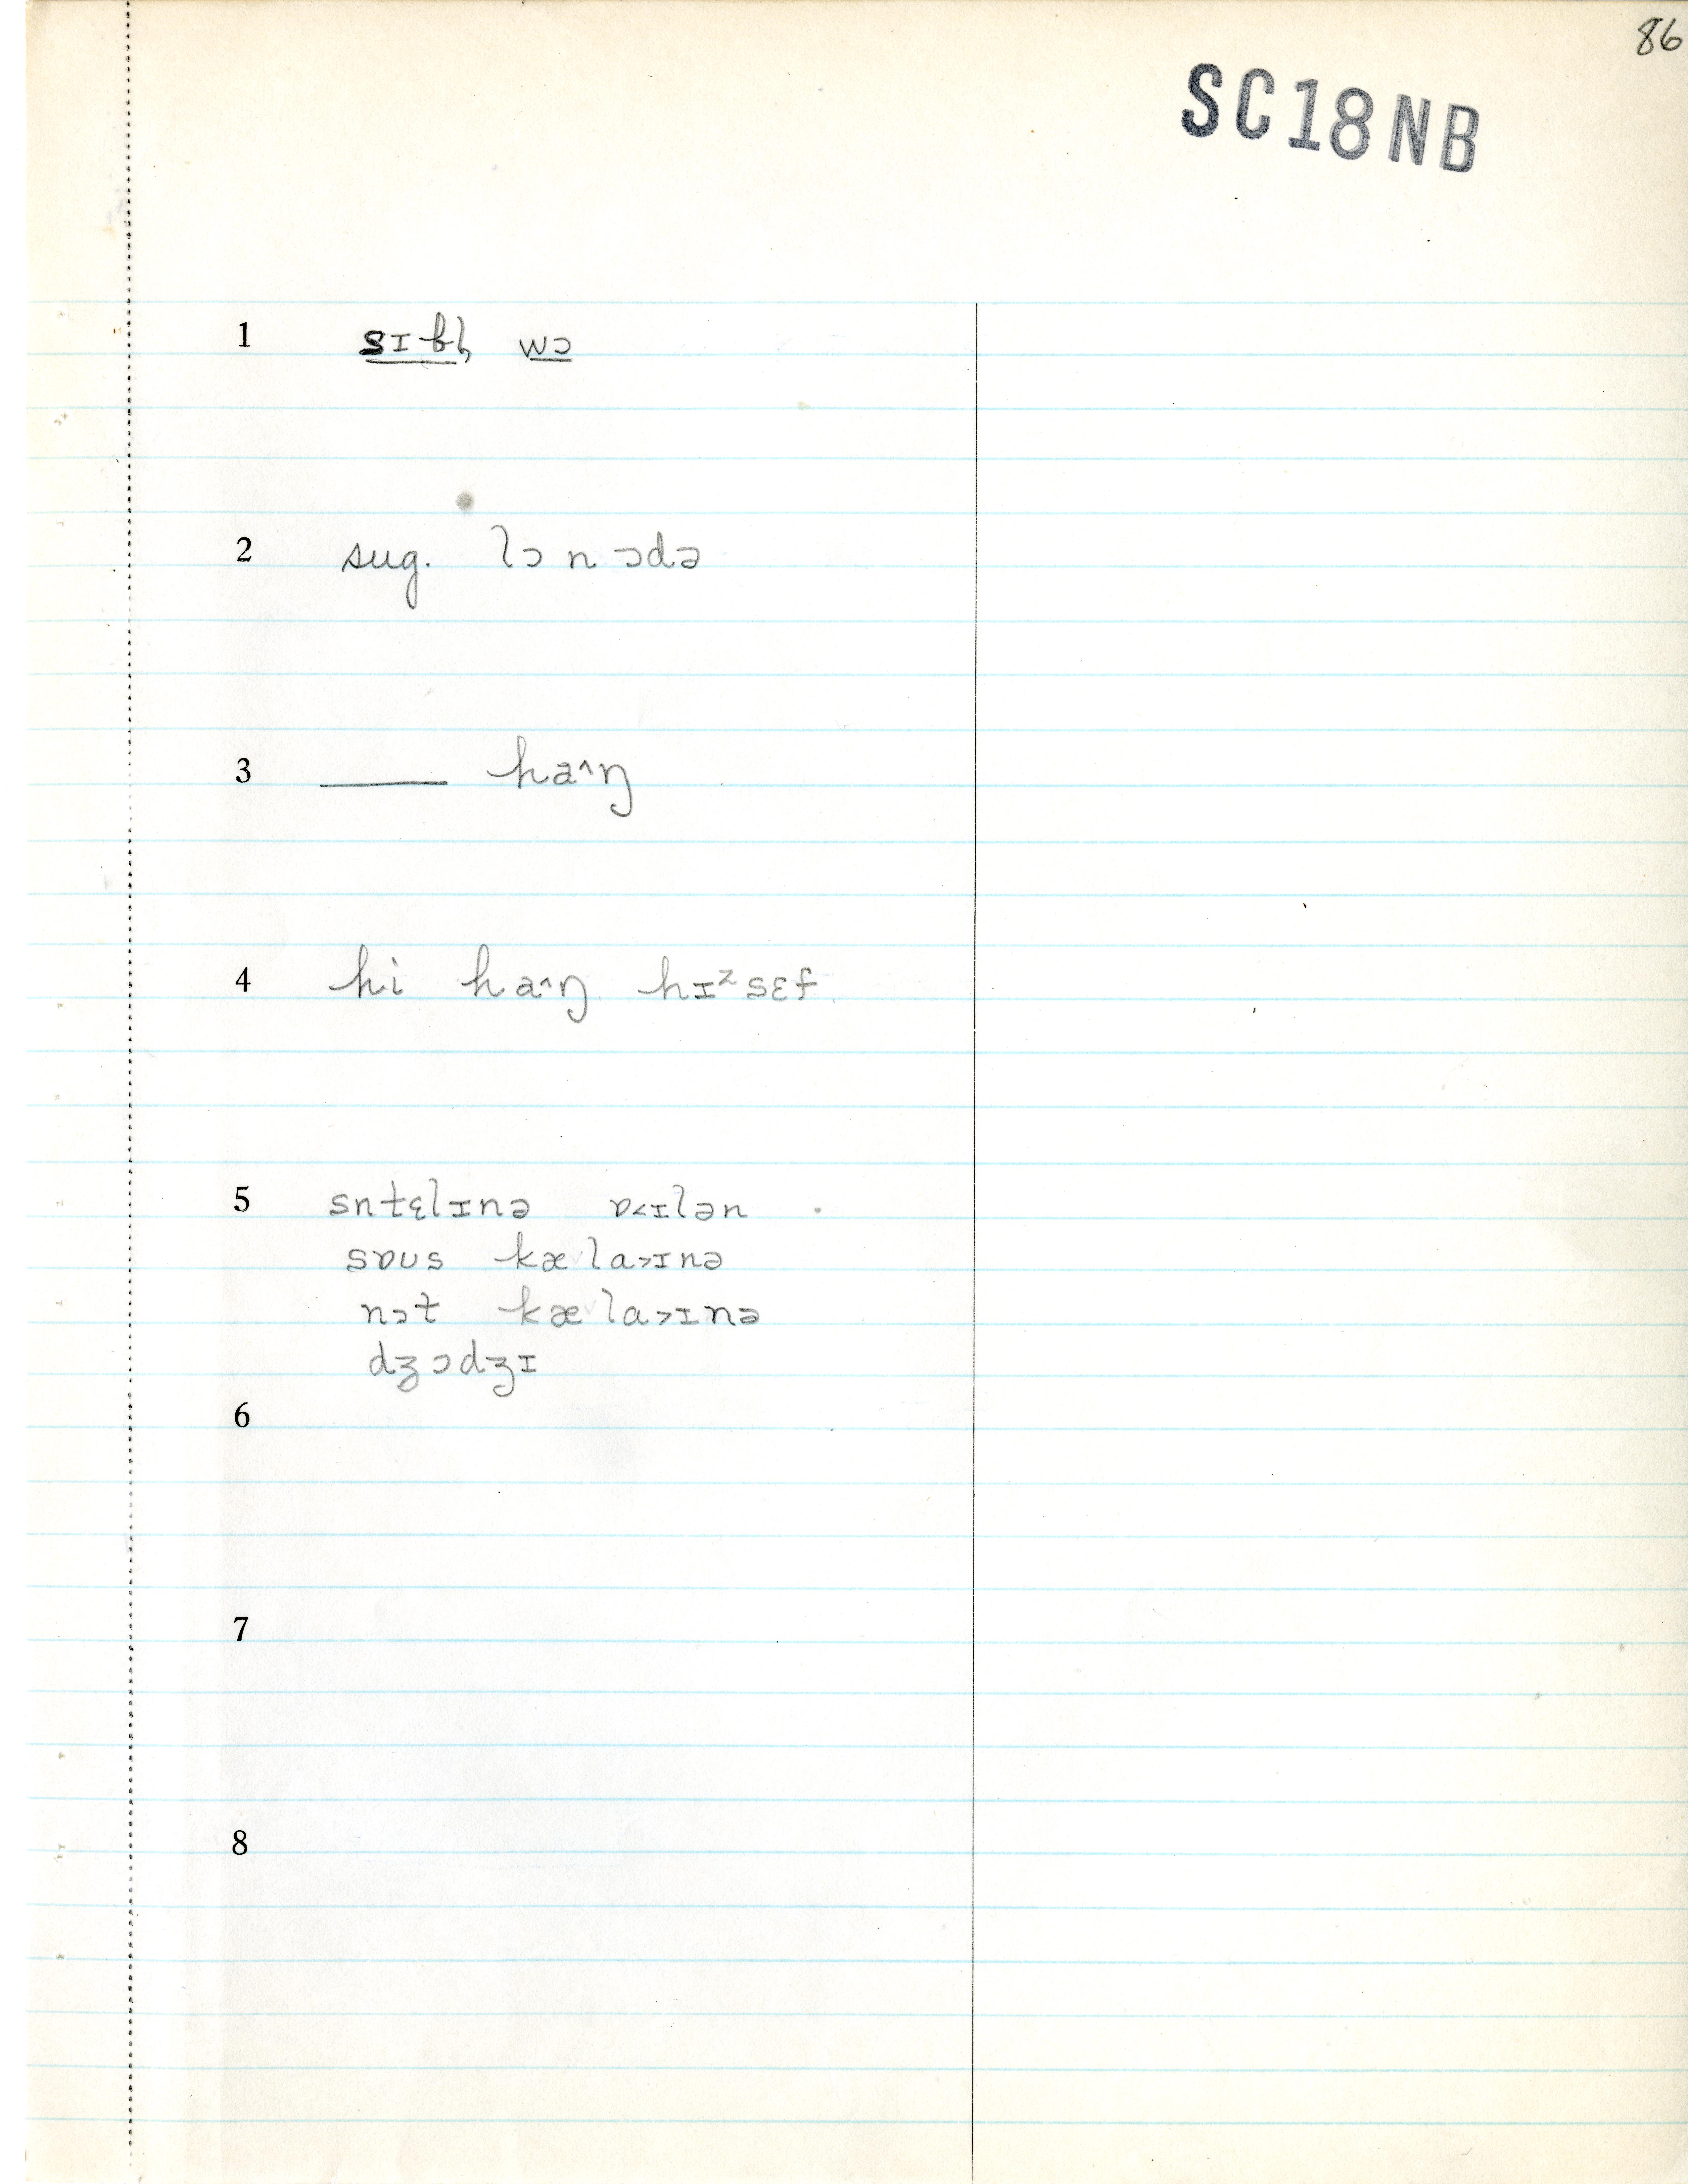 86
SC18NB
1 sɪƀl̩ wɔ
2 sug. lɔ n ɔdə
3 ___ haˆŋ
4 hi haˆŋ hɪᶻsɛf
5 sntɛlɪnə ɒ˂ɪlən
sɒʊs kæla˃ɪnə
nɔt kæla˃ɪnə
dʒɔdʒɪ
6
7
8